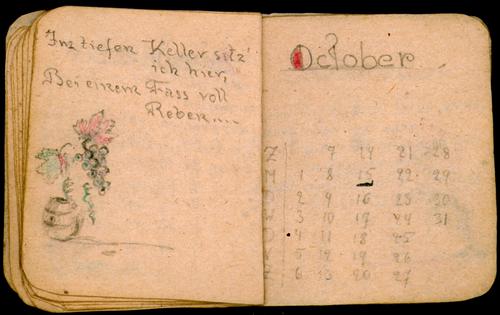 Im tiefen Keller sitz'
ich hier,
Bei einem Fass voll
Reben....
October
Z 7 14 21 28
M 1 8 15 22 29
D 2 9 16 23 30
W 3 10 17 24 31
D 4 11 18 25
V 5 12 19 26
Z 6 13 20 27